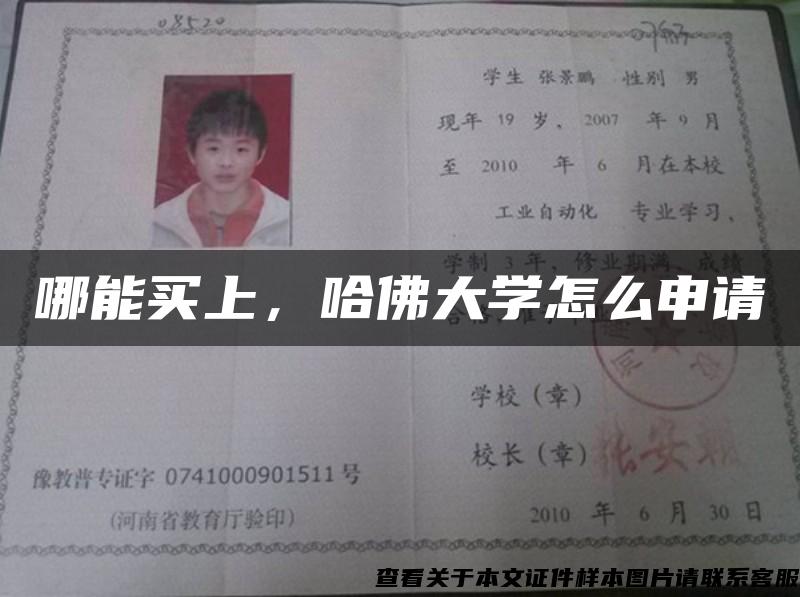 08520
学生 张景鹏 性别 男
现年 19 岁，2007 年 9 月
至 2010 年 6 月在本校
工业自动化 专业学习、
学制 3 年，修业期满，成绩
哪能买上，哈佛大学怎么申请
学校（章）
校长（章）
豫教普专证字 0741000901511 号
(河南省教育厅验印)
2010 年 6 月 30 日
查看关于本文证件样本图片请联系客服